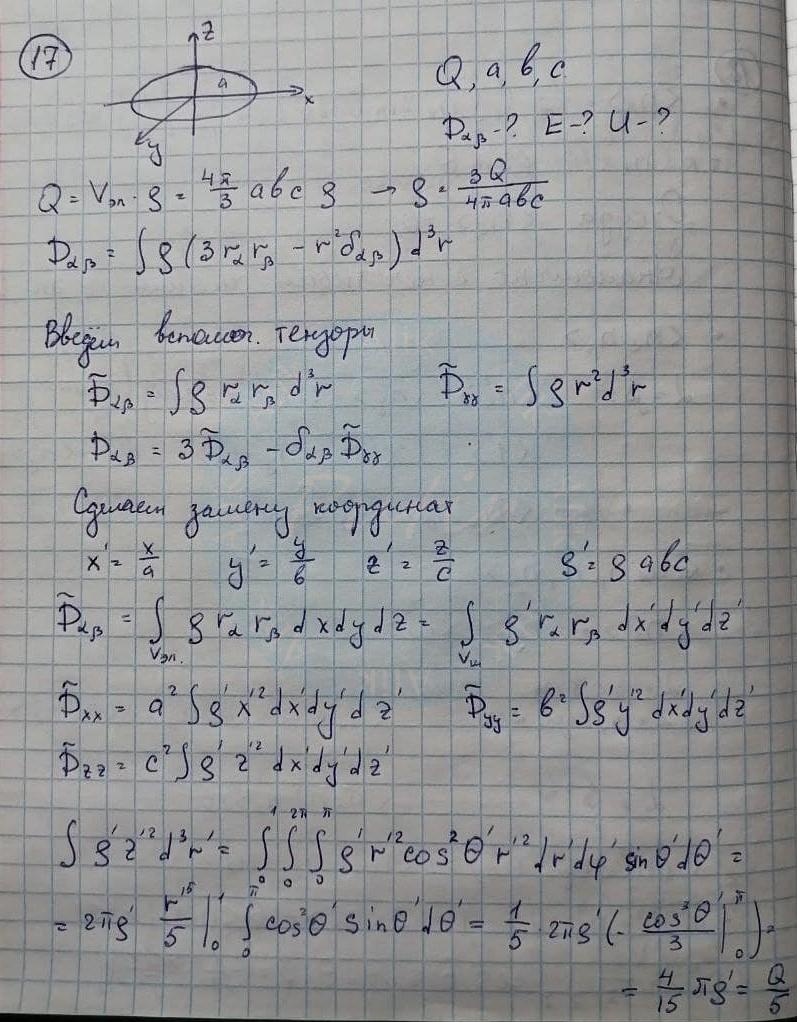 17
z
a
x
y
Q, a, в, c
D_αβ -? E -? U -?
Q = V_эл. · ρ = 4π/3 aвc ρ → ρ = 3Q/4πaвc
D_αβ = ∫ρ(3r_α r_β - r²δ_αβ) d³r
Введём вспомог. тензоры
D̃_αβ = ∫ρ r_α r_β d³r D̃_γγ = ∫ρ r² d³r
D_αβ = 3D̃_αβ - δ_αβ D̃_γγ
Сделаем замену координат
x' = x/a y' = y/в z' = z/c ρ' = ρ aвc
D̃_αβ = ∫_Vэл. ρ r_α r_β dxdydz = ∫_Vш ρ' r_α r_β dx'dy'dz'
D̃_xx = a² ∫ρ' x'² dx'dy'dz' D̃_yy = в² ∫ρ' y'² dx'dy'dz'
D̃_zz = c² ∫ρ' z'² dx'dy'dz'
∫ρ' z'² d³r' = ∫_0^1 ∫_0^2π ∫_0^π ρ' r'² cos²θ' r'² dr'dφ' sinθ'dθ' =
= 2πρ' r'⁵/5 |_0^1 ∫_0^π cos²θ' sinθ'dθ' = 1/5 · 2πρ' (- cos³θ'/3 |_0^π) =
= 4/15 πρ' = Q/5